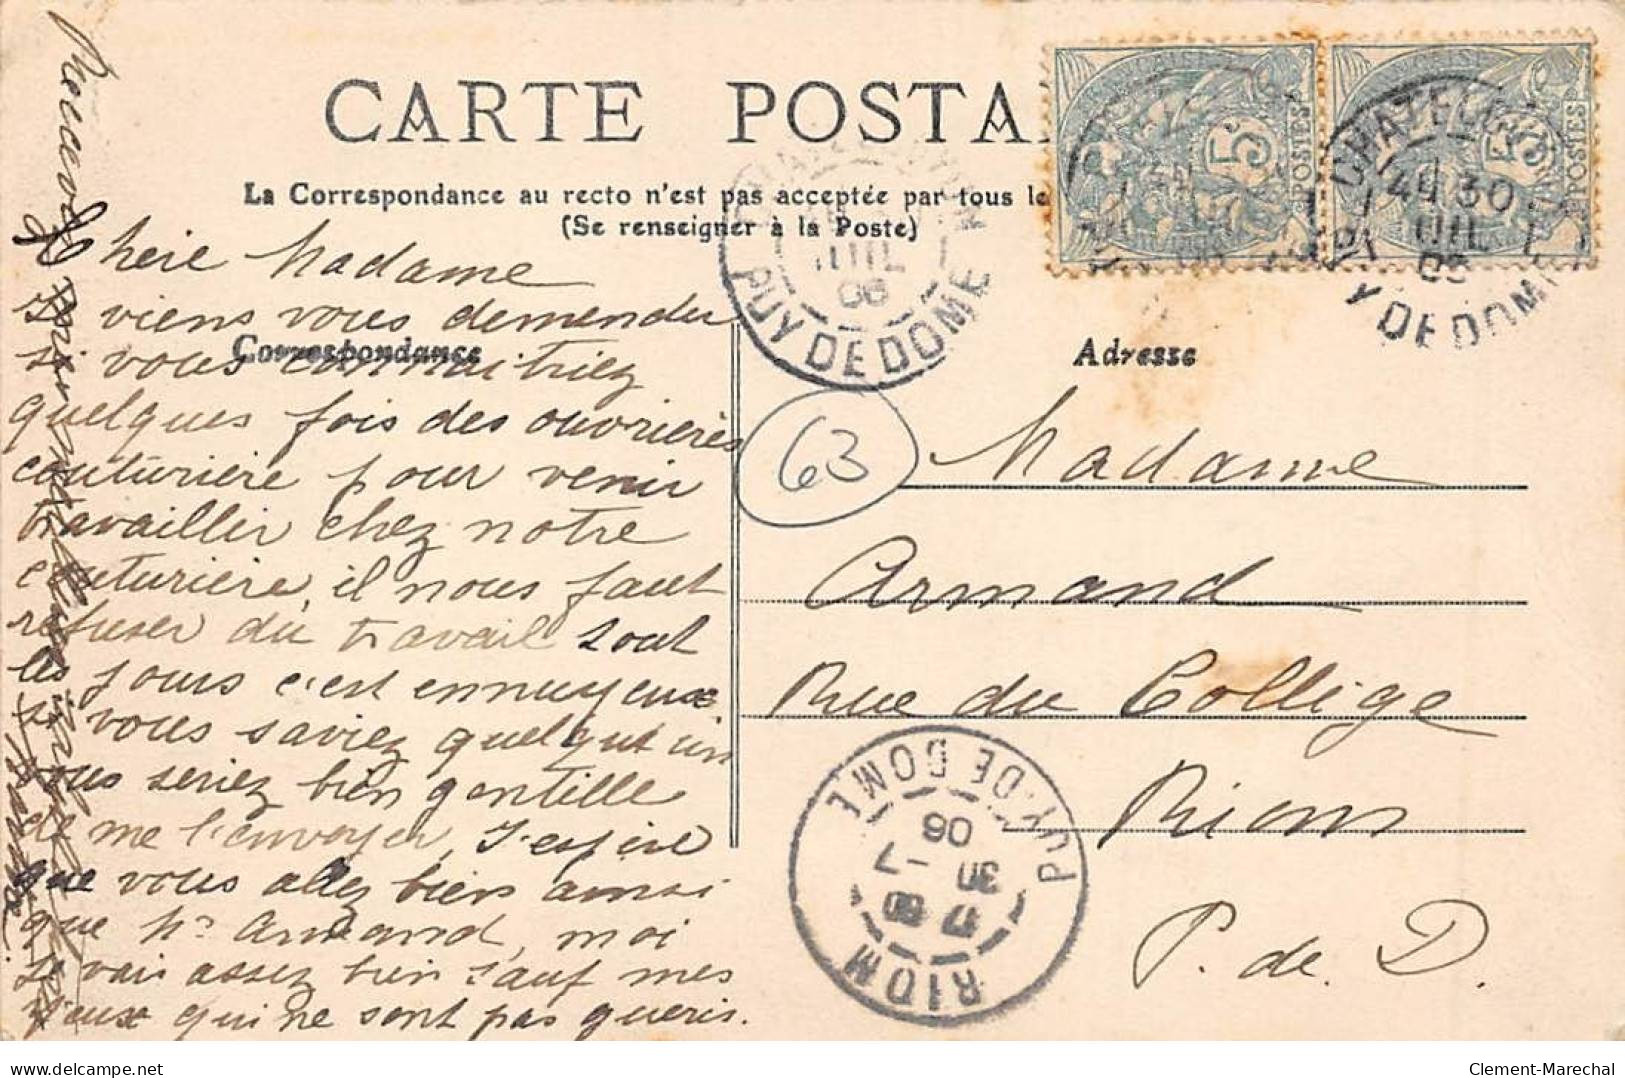 CARTE POSTA
La Correspondance au recto n'est pas acceptée par tous le
(Se renseigner à la Poste)
Correspondance
Chère Madame
Je viens vous demender
si vous connaitriez
quelques fois des ouvrières
couturière pour venir
travailler chez notre
couturière, il nous faut
refuser du travail tout
les jours c'est ennuyeux
si vous saviez quelqu'un
vous seriez bien gentille
de me l'envoyer, J'espère
que vous allez bien ainsi
que Mr Armand, moi
je vais assez bien sauf mes
yeux qui ne sont pas gueris.
Recevez
Adresse
63
Madame
Armand
Rue du Collège
Riom
P. de D.
5c
POSTES
5c
POSTES
PUY DE DOME
JUIL
06
CHATELGUYON
30
JUIL
PUY DE DOME
RIOM
PUY-DE-DOME
30 -7
06
Clement-Marechal
www.delcampe.net